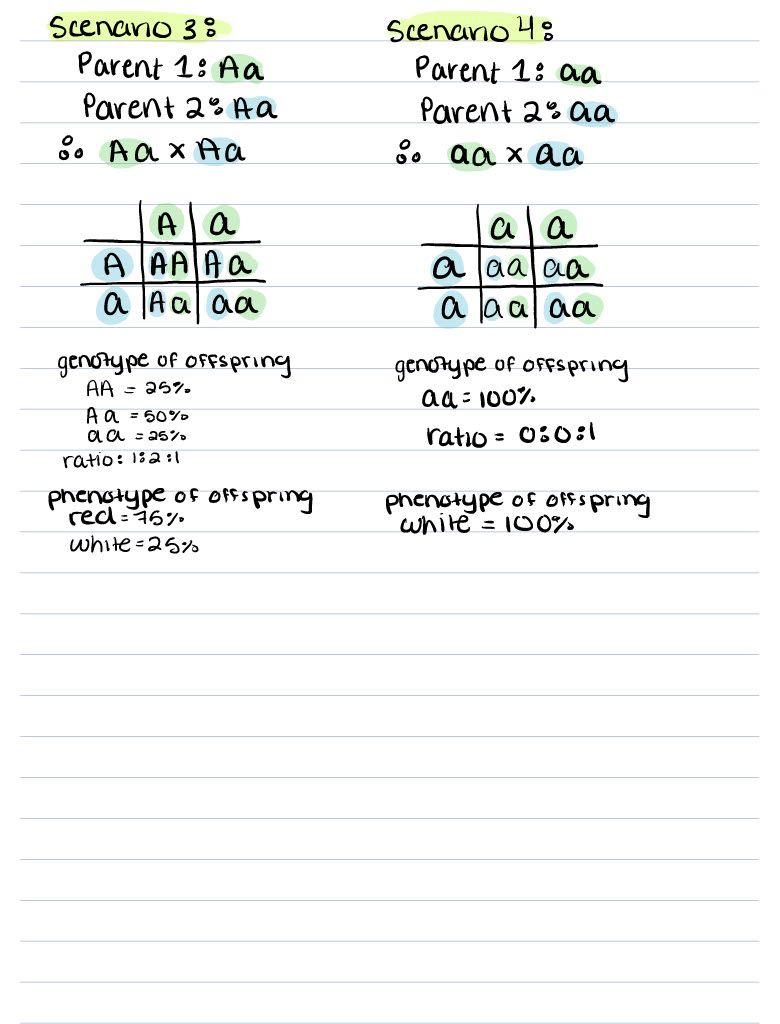 Scenario 3:
Parent 1: Aa
Parent 2: Aa
∴ Aa x Aa
A a
A AA Aa
a Aa aa
genotype of offspring
AA = 25%
Aa = 50%
aa = 25%
ratio: 1:2:1
phenotype of offspring
red = 75%
white = 25%
Scenario 4:
Parent 1: aa
Parent 2: aa
∴ aa x aa
a a
a aa aa
a aa aa
genotype of offspring
aa = 100%
ratio = 0:0:1
phenotype of offspring
white = 100%